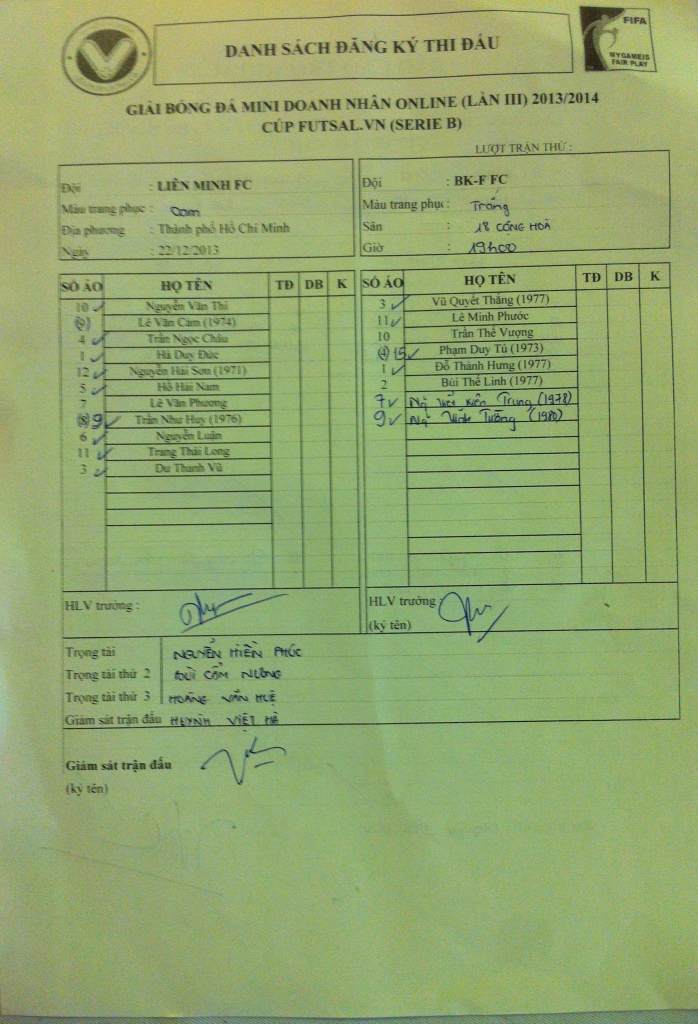 DANH SÁCH ĐĂNG KÝ THI ĐẤU
FIFA
MY GAME IS
FAIR PLAY
GIẢI BÓNG ĐÁ MINI DOANH NHÂN ONLINE (LẦN III) 2013/2014
CÚP FUTSAL.VN (SERIE B)
LƯỢT TRẬN THỨ :
Đội : LIÊN MINH FC
Màu trang phục : Cam
Địa phương : Thành phố Hồ Chí Minh
Ngày : 22/12/2013
Đội : BK-F FC
Màu trang phục : Trắng
Sân : 18 CỘNG HOÀ
Giờ : 19h00
SỐ ÁO HỌ TÊN TĐ DB K
10 Nguyễn Văn Thi
(9) Lê Văn Cam (1974)
4 Trần Ngọc Châu
1 Hà Duy Đức
12 Nguyễn Hải Sơn (1971)
5 Hồ Hải Nam
7 Lê Văn Phương
(8) 9 Trần Như Huy (1976)
6 Nguyễn Luận
11 Trang Thái Long
3 Dư Thanh Vũ
SỐ ÁO HỌ TÊN TĐ DB K
3 Vũ Quyết Thắng (1977)
11 Lê Minh Phước
10 Trần Thế Vượng
(4) 15 Phạm Duy Tú (1973)
1 Đỗ Thành Hưng (1977)
2 Bùi Thế Linh (1977)
7 Ng Kiên Trung (1978)
9 Ng Vĩnh Tường (1980)
HLV trưởng :
HLV trưởng
(ký tên)
Trọng tài NGUYỄN HIỀN PHÚC
Trọng tài thứ 2 BÙI CẨM NƯƠNG
Trọng tài thứ 3 HOÀNG VĂN HUỆ
Giám sát trận đấu HUỲNH VIỆT HÀ
Giám sát trận đấu
(ký tên)